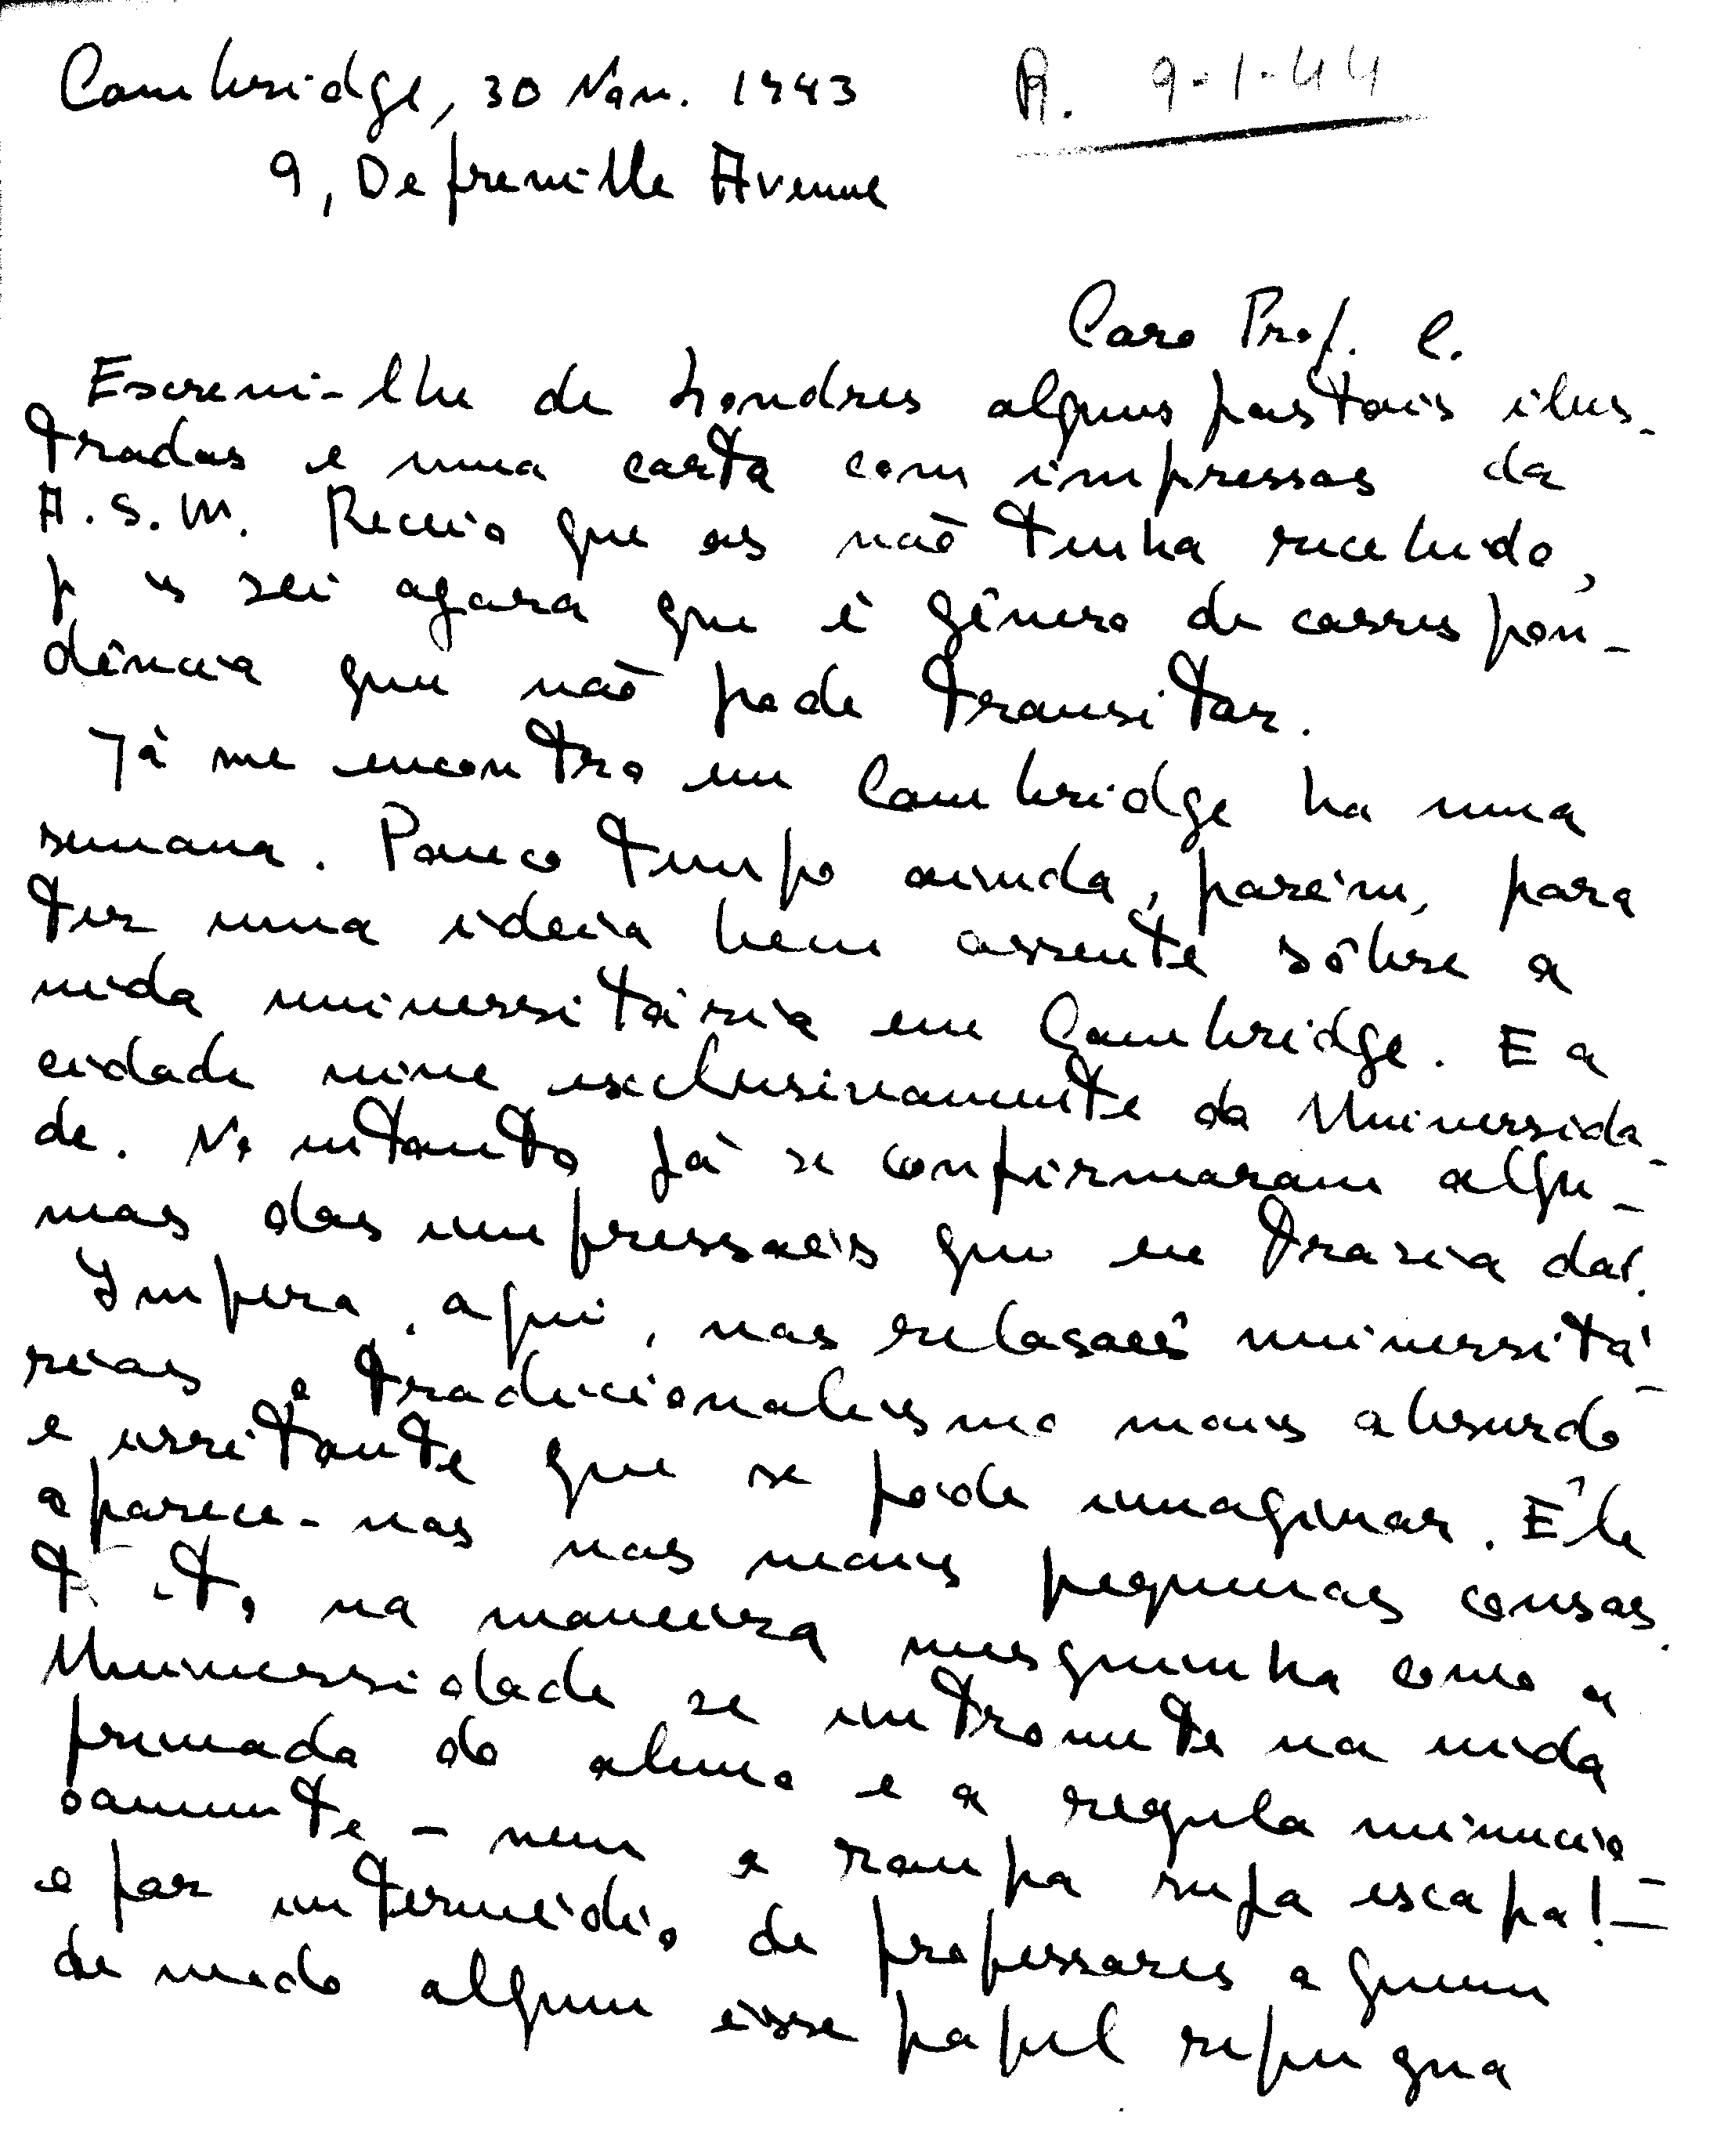 Cambridge, 30 Nov. 1943
R. 9-1-44
9, De freville Avenue
Caro Prof. C.
Escrevi-lhe de Londres alguns postais ilus-
trados e uma carta com impressos da
A.S.M. Receio que os não tenha recebido,
pois sei agora que é género de correspon-
dência que não pode transitar.
Já me encontro em Cambridge ha uma
semana. Pouco tempo ainda, porém, para
ter uma ideia bem assente sôbre a
vida universitária em Cambridge. E a
cidade vive exclusivamente da Universida-
de. No entanto já se confirmaram algu-
mas das impressões que eu trazia daí.
Impera, aqui, nas relações universitá-
rias o tradicionalismo mais absurdo
e irritante que se pode imaginar. Êle
aparece-nos nas mais pequenas cousas.
na maneira mesquinha como a
Universidade se intromete na vida
privada do aluno e a regula minucio-
samente - nem a roupa suja escapa! -
e por intermédio de professores a quem
de modo algum êsse papel repugna